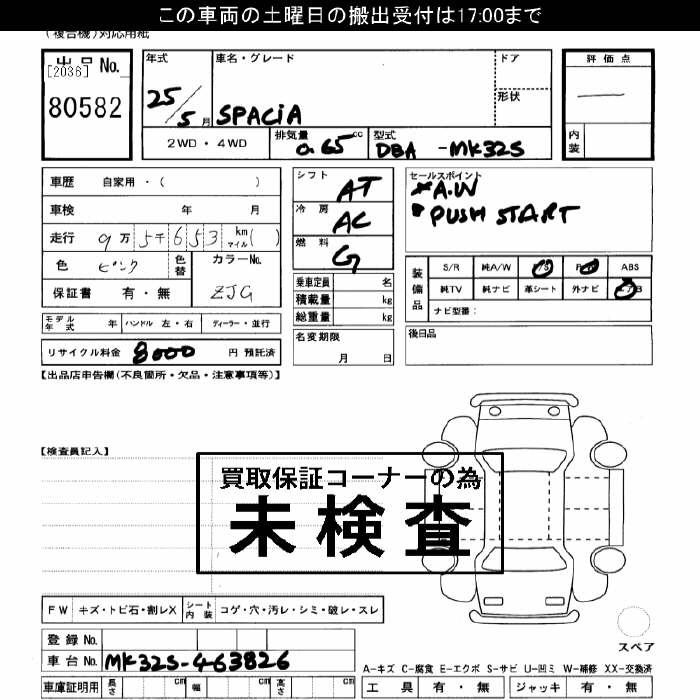 この車両の土曜日の搬出受付は17:00まで
(複合機)対応用紙
出品No.
[2036]
80582
年式
25/5月
車名・グレード
SPACiA
ドア
形状
評価点
内装
2WD・4WD
排気量 0.65 cc
型式 DBA -MK32S
車歴 自家用・( )
車検 年 月
走行 9万5千653 km マイル( )
色 ピンク
色替
カラーNo. ZJG
保証書 有・無
シフト AT
冷房 AC
燃料 G
乗車定員 名
積載量 kg
総重量 kg
名変期限
月 日
セールスポイント
*A.W
*PUSH START
装備品
S/R 純A/W P/S P/W ABS
純TV 純ナビ 革シート 外ナビ エアB
ナビ型番:
後日品
モデル年式 年 ハンドル 左・右 ディーラー・並行
リサイクル料金 8000 円 預託済
【出品店申告欄(不良箇所・欠品・注意事項等)】
【検査員記入】
買取保証コーナーの為
未検査
FW キズ・トビ石・割レX シート内装 コゲ・穴・汚レ・シミ・破レ・スレ
スペア
登録No.
車台No. MK32S-463826
A-キズ C-腐食 E-エクボ S-サビ U-凹ミ W-補修 XX-交換済
車庫証明用 長さ cm 幅 cm 高さ cm
工具 有・無 ジャッキ 有・無